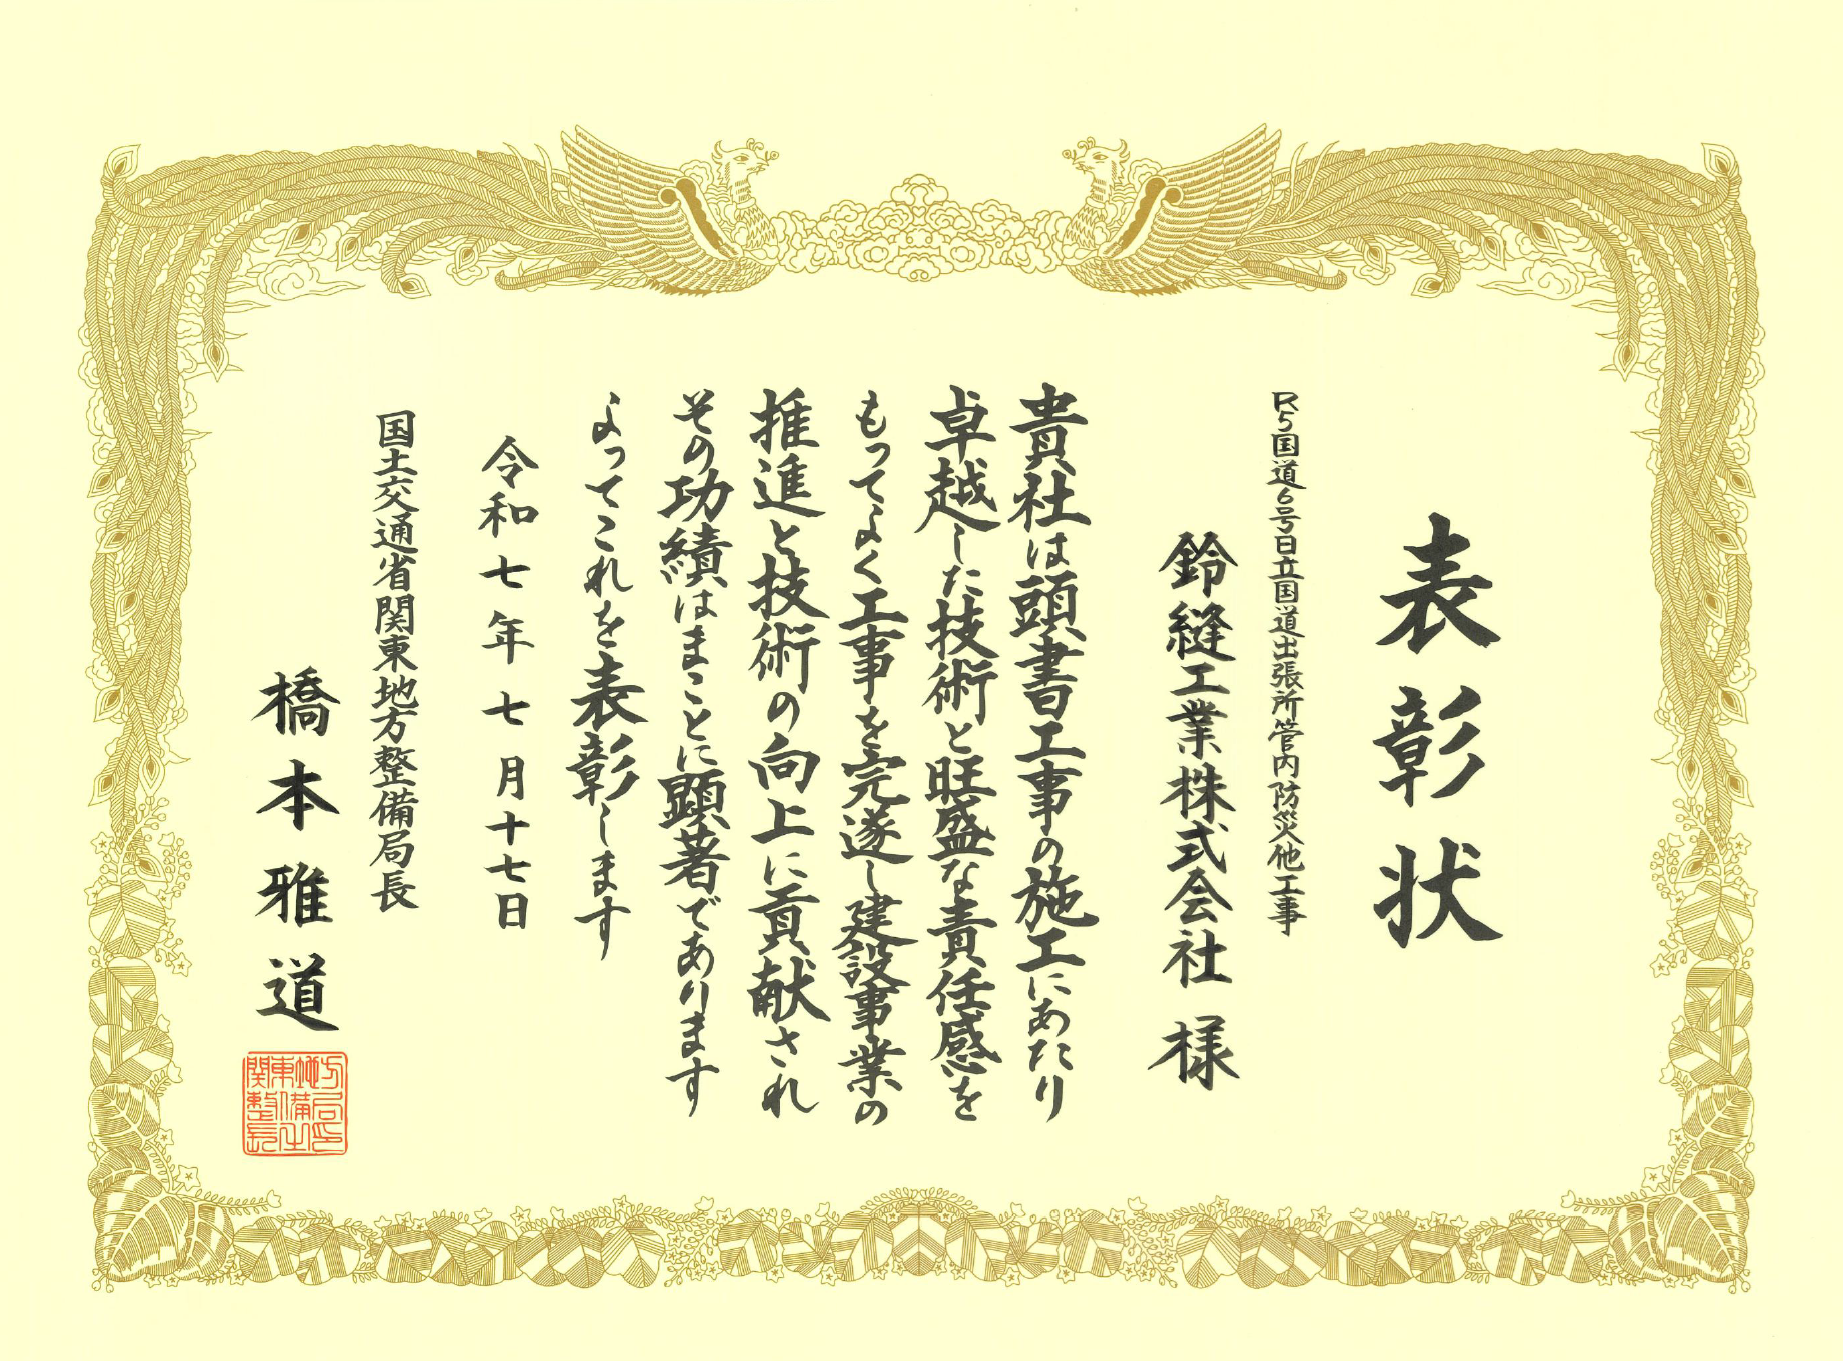 表彰状
R5国道6号日立国道出張所管内防災他工事
鈴縫工業株式会社 様
貴社は頭書工事の施工にあたり
卓越した技術と旺盛な責任感を
もってよく工事を完遂し建設事業の
推進と技術の向上に貢献され
その功績はまことに顕著であります
よってこれを表彰します
令和七年七月十七日
国土交通省関東地方整備局長
橋本雅道
関東地方
整備局
長之印